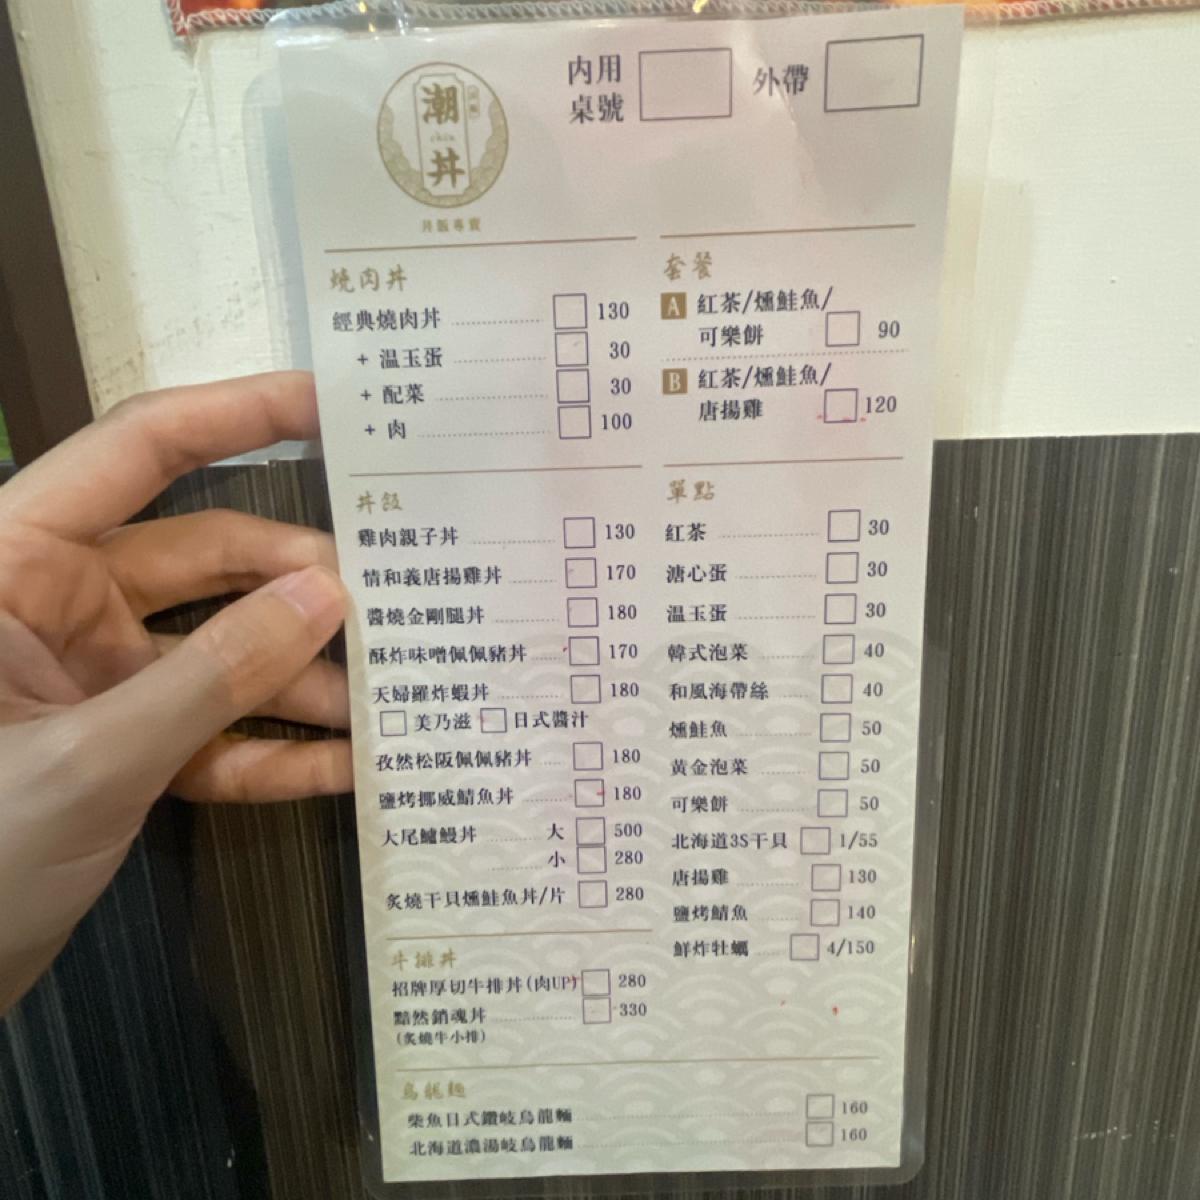 潮
丼
丼飯專賣
內用
桌號
外帶
燒肉丼
經典燒肉丼 130
+ 温玉蛋 30
+ 配菜 30
+ 肉 100
套餐
A 紅茶/燻鮭魚/
可樂餅 90
B 紅茶/燻鮭魚/
唐揚雞 120
丼飯
雞肉親子丼 130
情和義唐揚雞丼 170
醬燒金剛腿丼 180
酥炸味噌佩佩豬丼 170
天婦羅炸蝦丼 180
美乃滋 日式醬汁
孜然松阪佩佩豬丼 180
鹽烤挪威鯖魚丼 180
大尾鱸鰻丼 大 500
小 280
炙燒干貝燻鮭魚丼/片 280
單點
紅茶 30
溏心蛋 30
温玉蛋 30
韓式泡菜 40
和風海帶絲 40
燻鮭魚 50
黃金泡菜 50
可樂餅 50
北海道3S干貝 1/55
唐揚雞 130
鹽烤鯖魚 140
鮮炸牡蠣 4/150
牛排丼
招牌厚切牛排丼(肉UP) 280
黯然銷魂丼 330
(炙燒牛小排)
烏龍麵
柴魚日式讚岐烏龍麵 160
北海道濃湯岐烏龍麵 160